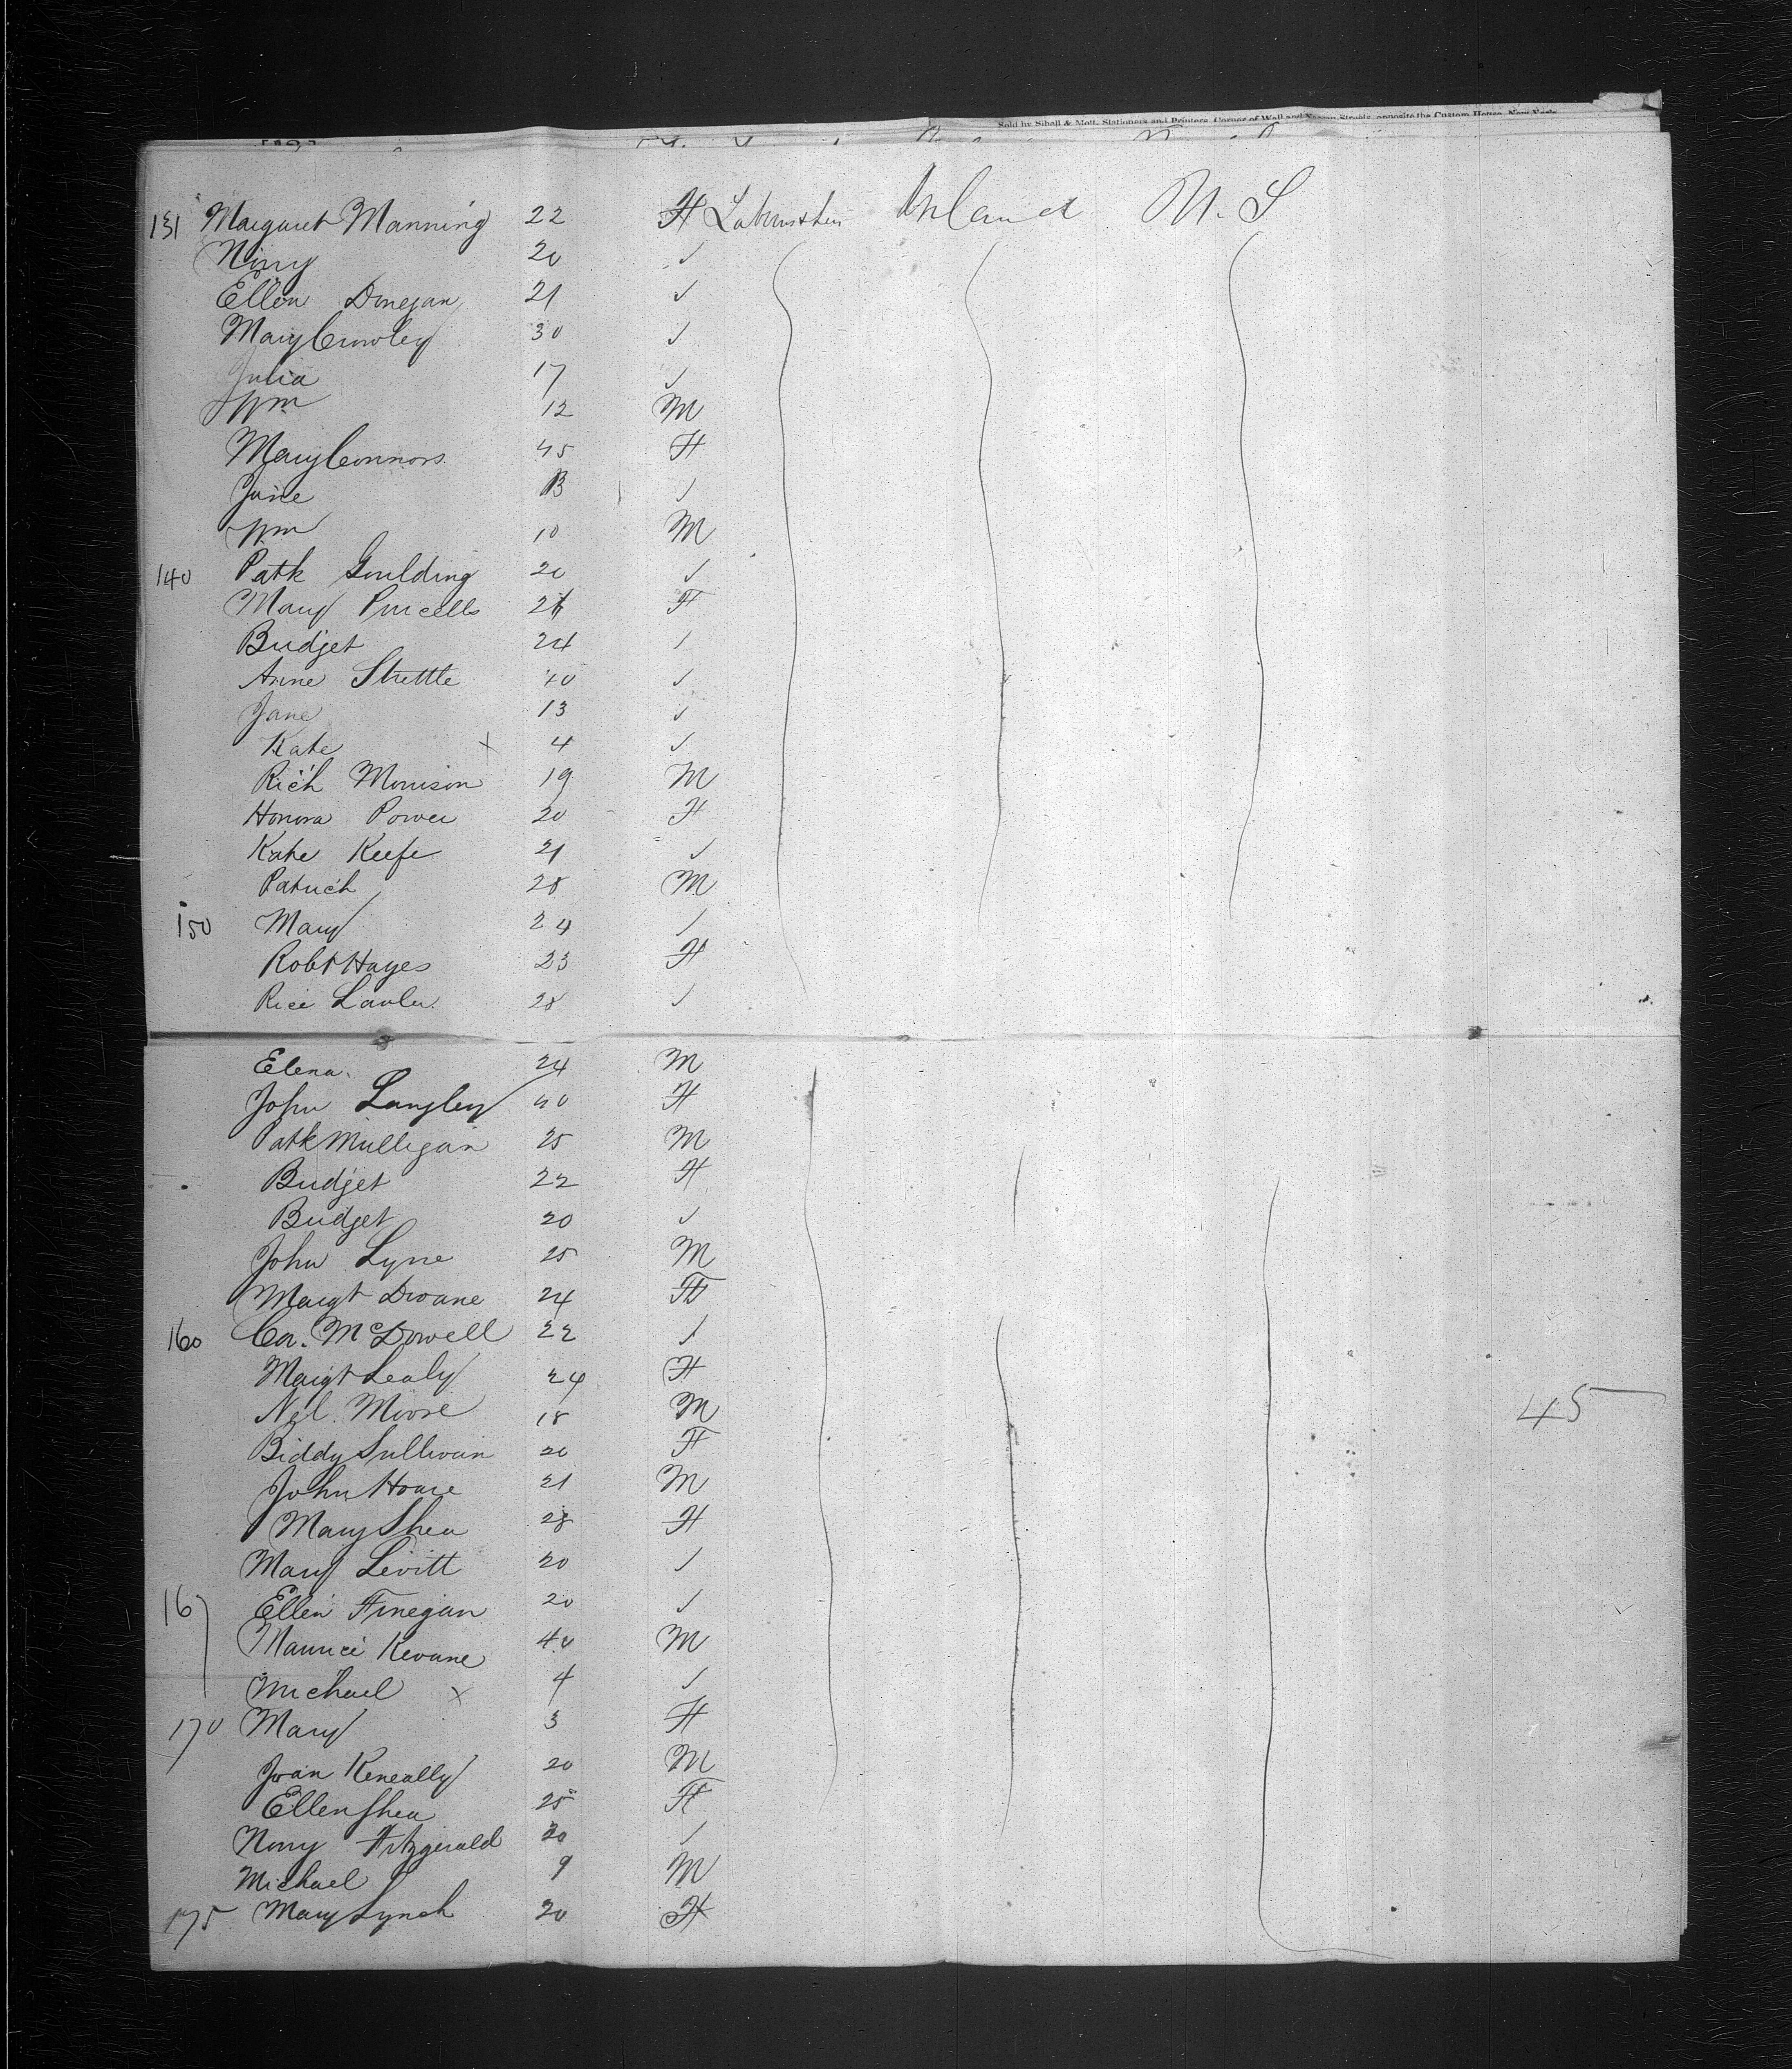 Sold by Sibell & Mott, Stationers and Printers, Corner of Wall and Nassau Streets, opposite the Custom House, New York
131 Margaret Manning 22 F Ireland U. S
Nory 20 ✓
Ellen Donegan 21 ✓
Mary Crowley 30 ✓
Julia 17 ✓
Wm 12 M
Mary Connors 45 F
Jane 13 ✓
Wm 10 M
140 Patk Goulding 20 ✓
Mary Purcells F
Bridget 24 ✓
Anne Shettle 40 ✓
Jane 13 ✓
Kate x 4 ✓
Rich Morrison 19 M
Honora Power 20 F
Kate Keefe 21 ✓
Patrick 28 M
150 Mary 24 ✓
Robt Hayes 23 F
Rice Lawler 28 ✓
Elena 24 M
John Langley 40 F
Patk Mulligan 25 M
Bridget 22 F
Bridget 20 ✓
John Lyne 25 M
Margt Droane 24 F
160 Ca. McDowell 22 ✓
Margt Lealy 24 F
Nel. Moore 18 M
45
Biddy Sullivan 20 F
John Hoare 21 M
Mary Shea 28 F
Mary Levitt 20 ✓
167 Ellen Finegan 20 ✓
Maurice Kevane 40 M
Michael x 4 ✓
170 Mary 3 F
Joan Keneally 20 M
Ellen Shea 25 F
Nory Fitzgerald 20 ✓
Michael 9 M
175 Mary Lynch 20 F